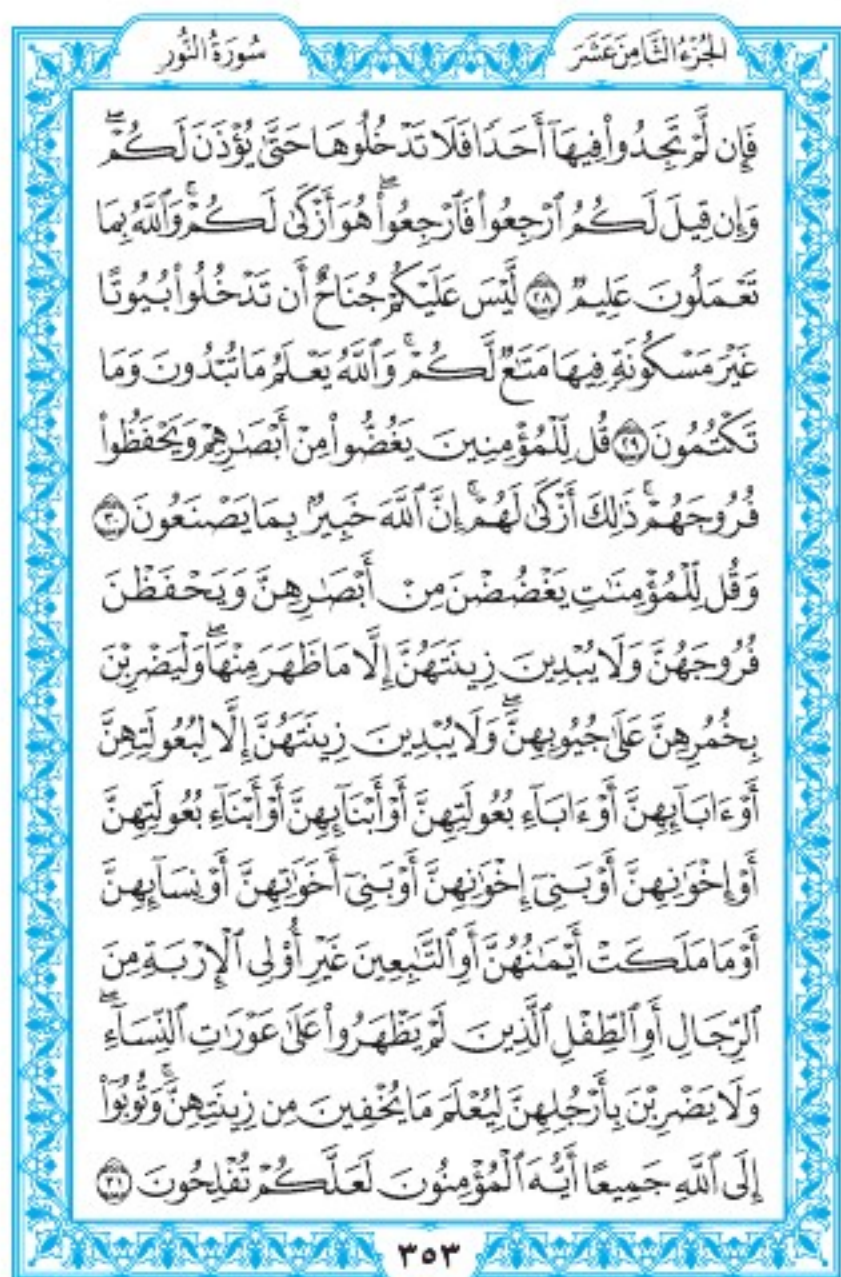 الجُزْءُ الثَّامِنَ عَشَرَ
سُورَةُ النُّورِ
فَإِن لَّمْ تَجِدُوا۟ فِيهَآ أَحَدًا فَلَا تَدْخُلُوهَا حَتَّىٰ يُؤْذَنَ لَكُمْ ۖ
وَإِن قِيلَ لَكُمُ ٱرْجِعُوا۟ فَٱرْجِعُوا۟ ۖ هُوَ أَزْكَىٰ لَكُمْ ۚ وَٱللَّهُ بِمَا
تَعْمَلُونَ عَلِيمٌ ٢٨ لَّيْسَ عَلَيْكُمْ جُنَاحٌ أَن تَدْخُلُوا۟ بُيُوتًا
غَيْرَ مَسْكُونَةٍ فِيهَا مَتَٰعٌ لَّكُمْ ۚ وَٱللَّهُ يَعْلَمُ مَا تُبْدُونَ وَمَا
تَكْتُمُونَ ٢٩ قُل لِّلْمُؤْمِنِينَ يَغُضُّوا۟ مِنْ أَبْصَٰرِهِمْ وَيَحْفَظُوا۟
فُرُوجَهُمْ ۚ ذَٰلِكَ أَزْكَىٰ لَهُمْ ۗ إِنَّ ٱللَّهَ خَبِيرٌۢ بِمَا يَصْنَعُونَ ٣٠
وَقُل لِّلْمُؤْمِنَٰتِ يَغْضُضْنَ مِنْ أَبْصَٰرِهِنَّ وَيَحْفَظْنَ
فُرُوجَهُنَّ وَلَا يُبْدِينَ زِينَتَهُنَّ إِلَّا مَا ظَهَرَ مِنْهَا ۖ وَلْيَضْرِبْنَ
بِخُمُرِهِنَّ عَلَىٰ جُيُوبِهِنَّ ۖ وَلَا يُبْدِينَ زِينَتَهُنَّ إِلَّا لِبُعُولَتِهِنَّ
أَوْ ءَابَآئِهِنَّ أَوْ ءَابَآءِ بُعُولَتِهِنَّ أَوْ أَبْنَآئِهِنَّ أَوْ أَبْنَآءِ بُعُولَتِهِنَّ
أَوْ إِخْوَٰنِهِنَّ أَوْ بَنِىٓ إِخْوَٰنِهِنَّ أَوْ بَنِىٓ أَخَوَٰتِهِنَّ أَوْ نِسَآئِهِنَّ
أَوْ مَا مَلَكَتْ أَيْمَٰنُهُنَّ أَوِ ٱلتَّٰبِعِينَ غَيْرِ أُو۟لِى ٱلْإِرْبَةِ مِنَ
ٱلرِّجَالِ أَوِ ٱلطِّفْلِ ٱلَّذِينَ لَمْ يَظْهَرُوا۟ عَلَىٰ عَوْرَٰتِ ٱلنِّسَآءِ ۖ
وَلَا يَضْرِبْنَ بِأَرْجُلِهِنَّ لِيُعْلَمَ مَا يُخْفِينَ مِن زِينَتِهِنَّ ۚ وَتُوبُوٓا۟
إِلَى ٱللَّهِ جَمِيعًا أَيُّهَ ٱلْمُؤْمِنُونَ لَعَلَّكُمْ تُفْلِحُونَ ٣١
٣٥٣